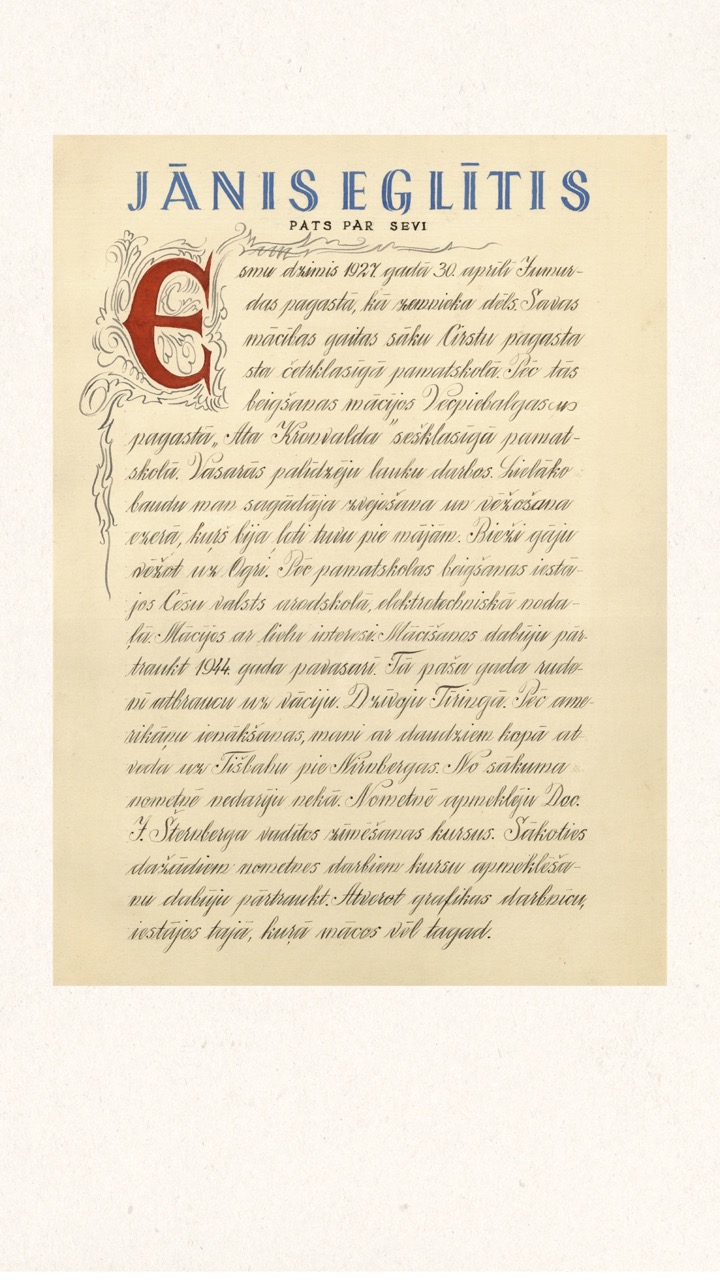 JĀNIS EGLĪTIS
PATS PAR SEVI
Esmu dzimis 1927. gadā 30. aprīlī Jumur-
das pagastā, kā zemnieka dēls. Savas
mācības gaitas sāku Cirstu pagasta
sta četrklasīgā pamatskolā. Pēc tās
beigšanas mācijos Vecpiebalgas
pagastā „Ata Kronvalda" sešklasīgā pamat-
skolā. Vasarās palīdzēju lauku darbos. Lielāko
baudu man sagādāja zvejošana un vēžošana
ezerā, kurš bija ļoti tuvu pie mājām. Bieži gāju
vēžot uz Ogri. Pēc pamatskolas beigšanas iestā-
jos Cēsu valsts arodskolā, elektrotechniskā noda-
ļā. Mācijos ar lielu interesi. Mācīšanos dabūju pār-
traukt 1944. gada pavasarī. Tā paša gada rude-
nī atbraucu uz vāciju. Dzīvoju Tīringā. Pēc ame-
rikāņu ienākšanas, mani ar daudziem kopā at-
veda uz Tišbahu pie Nirnbergas. No sākuma
nometnē nedarīju nekā. Nometnē apmeklēju Doc.
J. Šternberga vadītos zīmēšanas kursus. Sākoties
dažādiem nometnes darbiem kursu apmeklēša-
nu dabūju pārtraukt. Atverot grafikas darbnīcu,
iestājos tajā, kuŗā mācos vēl tagad.